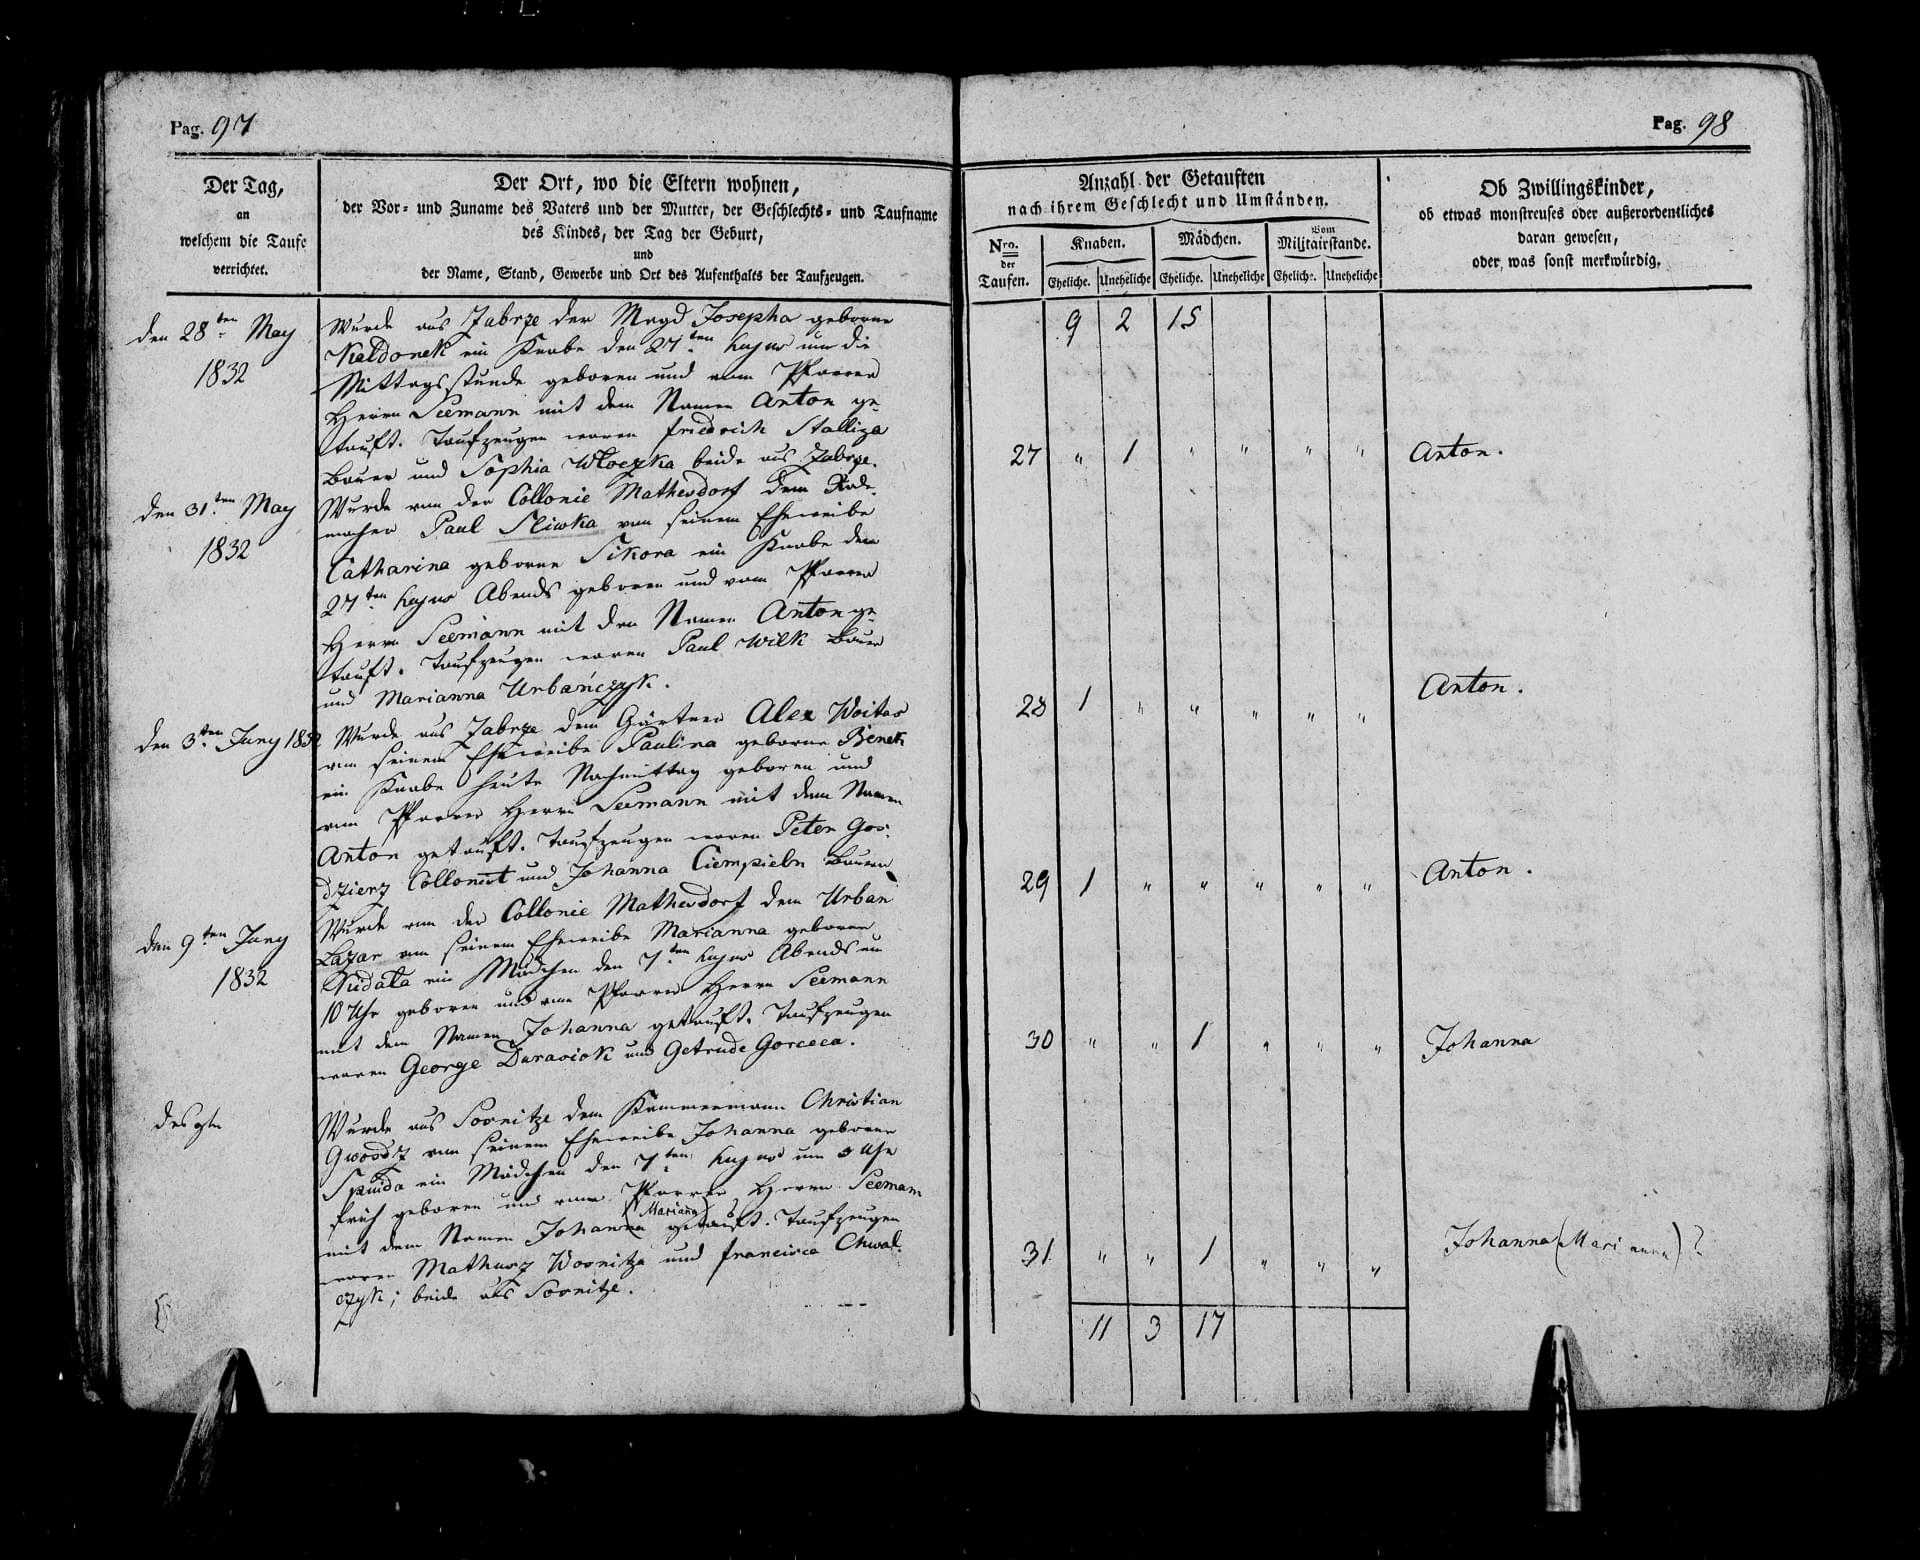 Pag. 97
Der Tag,
an
welchem die Taufe
verrichtet.
Der Ort, wo die Eltern wohnen,
der Vor- und Zuname des Vaters und der Mutter, der Geschlechts- und Taufname
des Kindes, der Tag der Geburt,
und
der Name, Stand, Gewerbe und Ort des Aufenthalts der Taufzeugen.
den 28ten May
1832
Wurde aus Zabrze der Magd Josepha geborne
Kaldonek ein Knabe den 27ten hujus um die
Mittagsstunde geboren und vom Pfarrer
Herrn Seemann mit dem Namen Anton ge-
tauft. Taufzeugen waren Friedrich Stalliza
Bauer und Sophia Wloczka beide aus Zabrze.
den 31ten May
1832
Wurde von der Collonie Mathesdorf dem Rade-
macher Paul Sliwka von seinem Eheweibe
Catharina geborne Sikora ein Knabe den
27ten hujus Abends geboren und vom Pfarrer
Herrn Seemann mit den Namen Anton ge-
tauft. Taufzeugen waren Paul Wilk Bauer
und Marianna Urbańczyk.
den 3ten Juny 1832
Wurde aus Zabrze dem Gärtner Alex Woitas
von seinem Eheweibe Paulina geborne Bienek
ein Knabe heute Nachmittag geboren und
vom Pfarrer Herrn Seemann mit dem Namen
Anton getauft. Taufzeugen waren Peter Gos-
dzierz Collonist und Johanna Ciempieln Bauern
den 9ten Juny
1832
Wurde von der Collonie Mathesdorf dem Urban
Lazar von seinem Eheweibe Marianna geborne
Kudala ein Mädchen den 7ten hujus Abends um
10 Uhr geboren und vom Pfarrer Herrn Seemann
mit dem Namen Johanna getauft. Taufzeugen
waren George Duraviok und Getrude Gorceca.
des gten
Wurde aus Sosnitze dem Kammermann Christian
Gwosdz von seinem Eheweibe Johanna geborne
Spuida ein Mädchen den 7ten hujus um 3 Uhr
früh geboren und vom Pfarrer Herrn Seemann
(Marianna)
mit dem Namen Johanna getauft. Taufzeugen
waren Mathusz Wosnitza und Francisca Chwal-
czyk; beide aus Sosnitze.
Pag. 98
Anzahl der Getauften
nach ihrem Geschlecht und Umständen.
Nro.
der
Taufen.
Knaben.
Mädchen.
Vom
Militairstande.
Eheliche. Uneheliche Eheliche. Uneheliche Eheliche. Uneheliche
Ob Zwillingskinder,
ob etwas monstreuses oder außerordentliches
daran gewesen,
oder, was sonst merkwürdig.
9 2 15
27 " 1 " " " " Anton.
28 1 " " " " " Anton.
29 1 " " " " " Anton.
30 " " 1 " " " Johanna
31 " " 1 " " " Johanna (Marianna)?
11 3 17